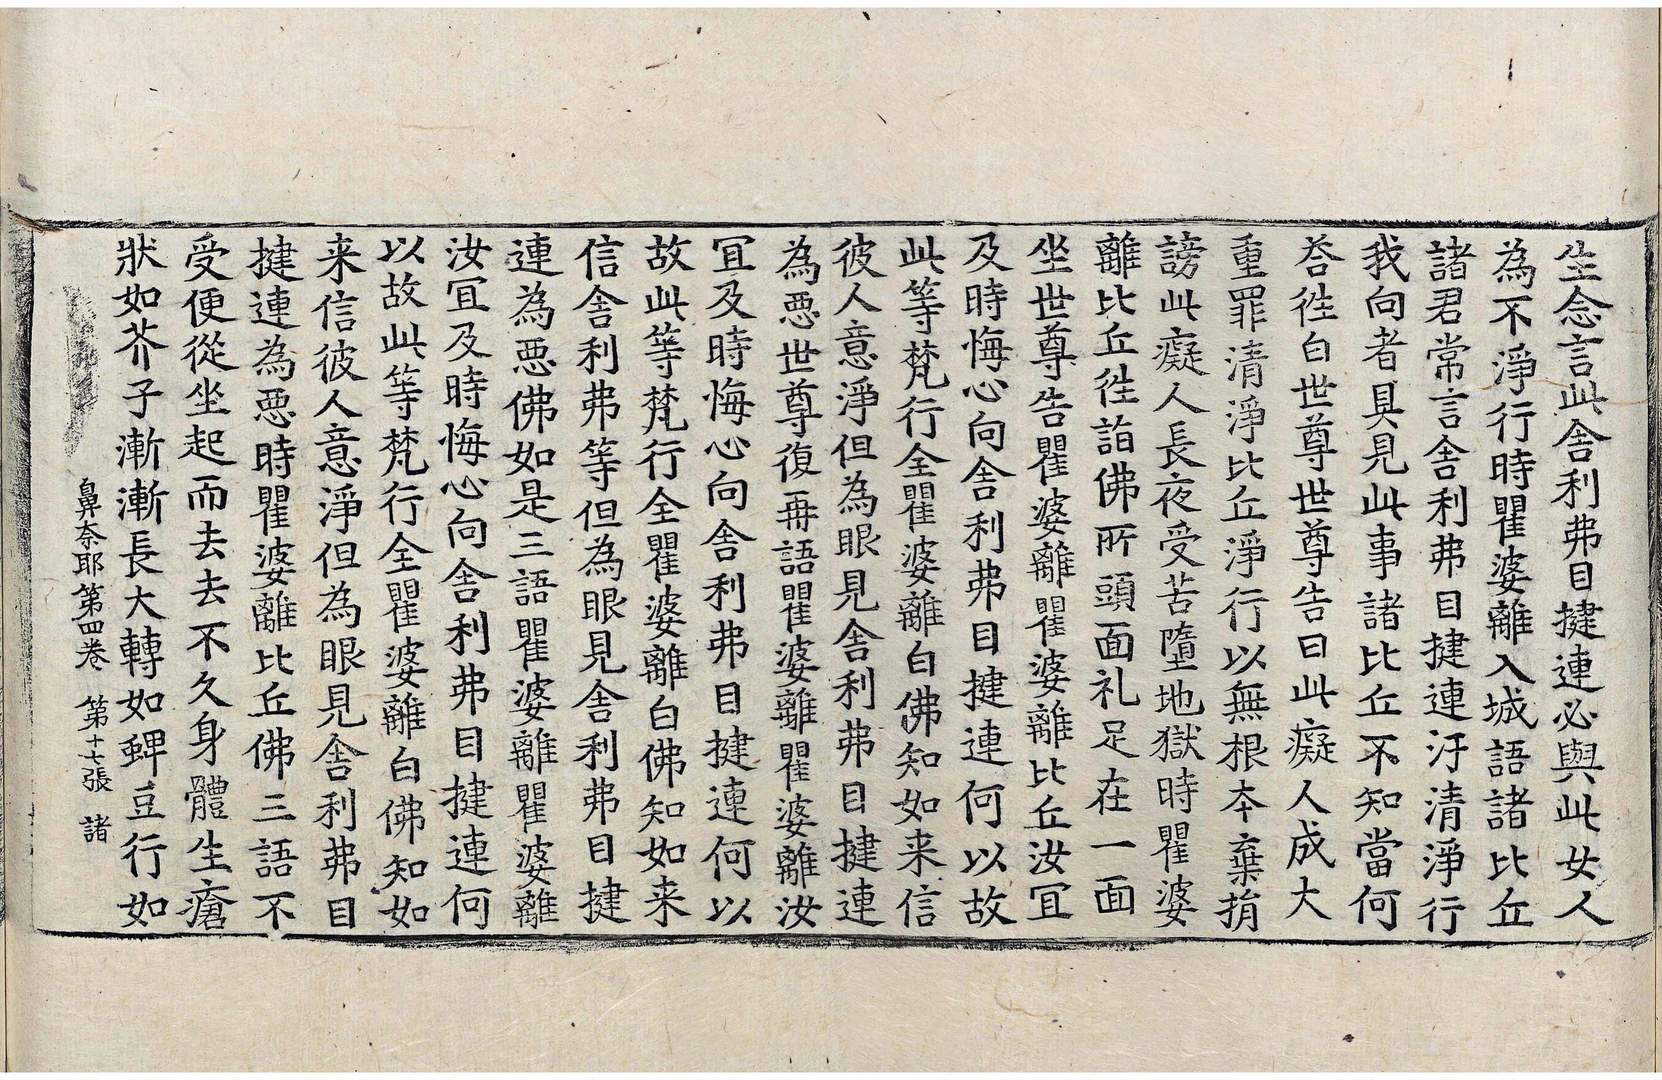 生念言此舍利弗目揵連必與此女人
為不淨行時瞿婆離入城語諸比丘
諸君常言舍利弗目揵連汙清淨行
我向者具見此事諸比丘不知當何
荅徃白世尊世尊告曰此癡人成大
重罪清淨比丘淨行以無根本棄捐
謗此癡人長夜受苦墮地獄時瞿婆
離比丘徃詣佛所頭面礼足在一面
坐世尊告瞿婆離瞿婆離比丘汝冝
及時悔心向舍利弗目揵連何以故
此等梵行全瞿婆離白佛知如来信
彼人意淨但為眼見舍利弗目揵連
為惡世尊復再語瞿婆離瞿婆離汝
冝及時悔心向舍利弗目揵連何以
故此等梵行全瞿婆離白佛知如来
信舍利弗等但為眼見舍利弗目揵
連為惡佛如是三語瞿婆離瞿婆離
汝冝及時悔心向舍利弗目揵連何
以故此等梵行全瞿婆離白佛知如
来信彼人意淨但為眼見舍利弗目
揵連為惡時瞿婆離比丘佛三語不
受便從坐起而去去不久身體生瘡
狀如芥子漸漸長大轉如蜱豆行如
鼻奈耶第四卷 第十七張 諸